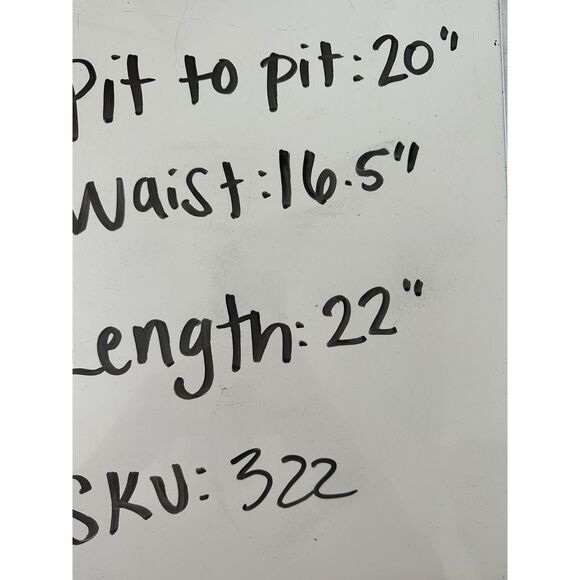 Pit to pit: 20"
Waist: 16.5"
Length: 22"
SKU: 322